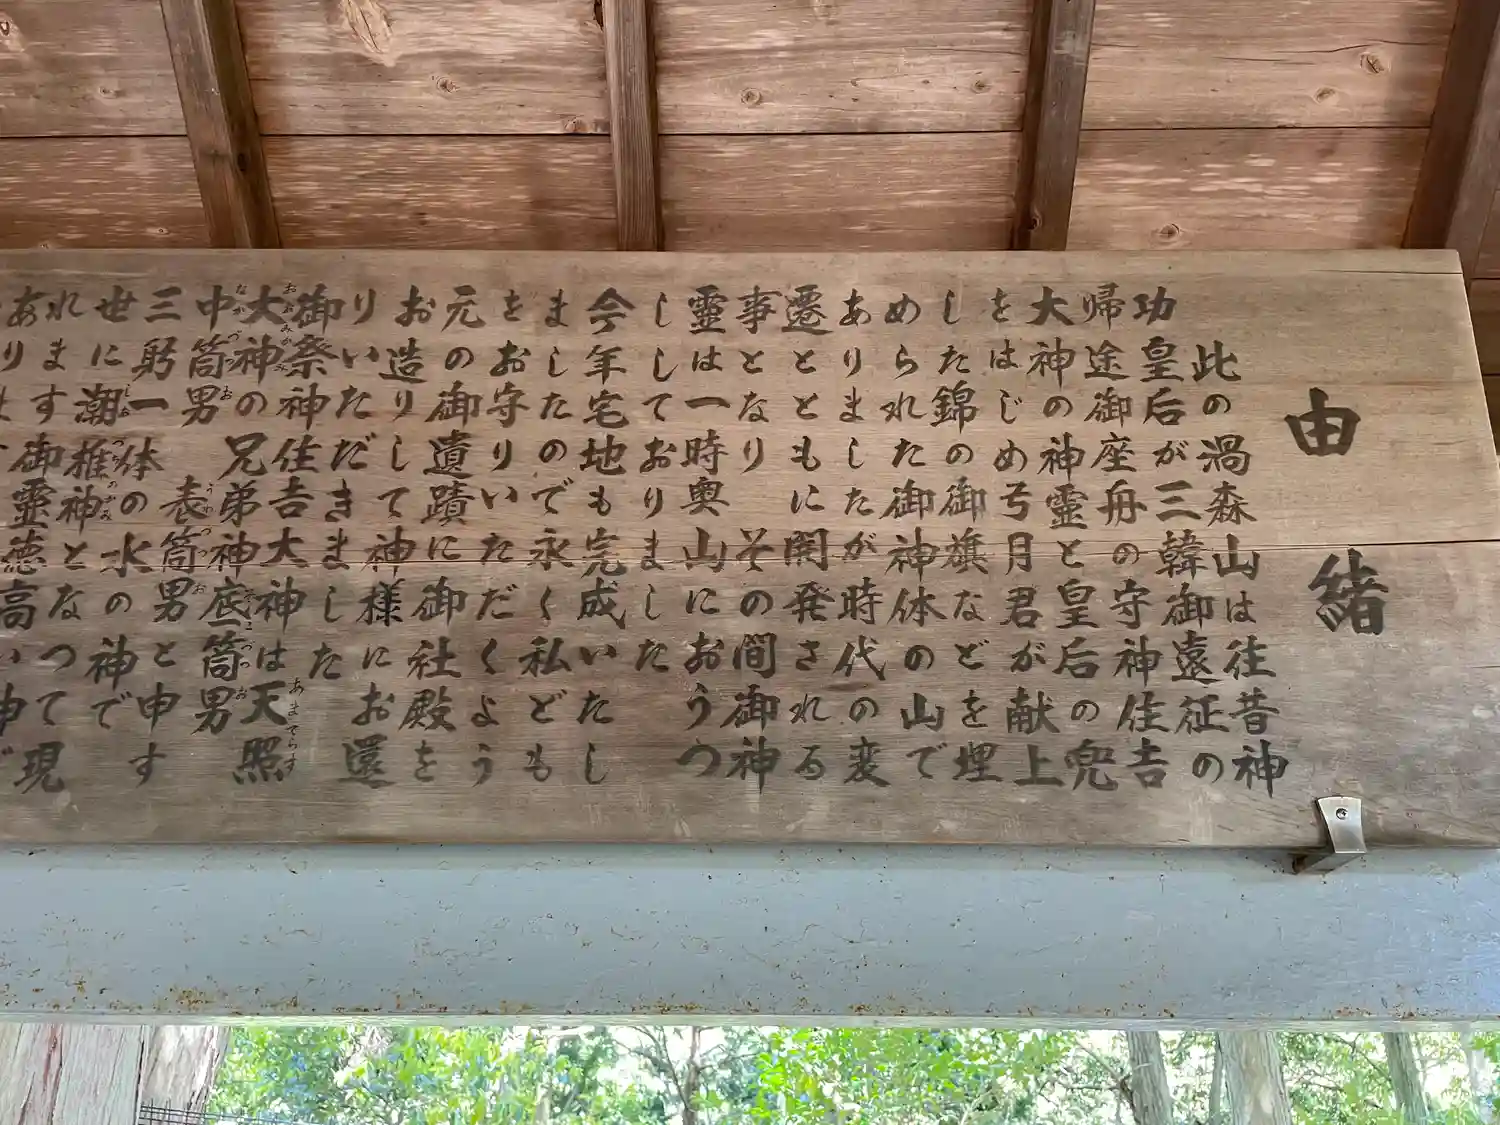 由緒
此の渦森山は往昔神
功皇后が三韓御遠征の
帰途御座舟の守神住吉
大神の神霊と皇后の兜
をはじめ弓月君が献上
した錦の御旗などを埋
められた御神体の山で
ありましたが時代の変
遷とともに開発される
事となりその間御神
霊は一時奥山におうつ
ししておりました
今年宅地も完成いたし
ましたので永く私ども
をお守りいただくよう
元の御遺蹟に御社殿を
お造りして神様にお還
りいただきました
御祭神住吉大神は天照
大神の兄弟神底筒男
中筒男 表筒男
三躬一体の水神と申す
世に潮椎神との神で
れますとなつて現